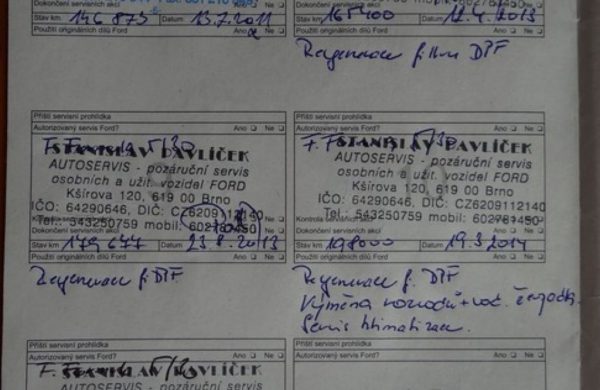 Dokončení servisních akcí Ano ❏ Ne ❏
Stav km 146 873 Datum 13.7.2011
Použití originálních dílů Ford Ano ❏ Ne ❏
Stav km 165400 Datum 12.4.2013
Použití originálních dílů Ford Ano ❏ Ne ❏
Regenerace filtru DPF
Příští servisní prohlídka
Autorizovaný servis Ford? Ano ❏ Ne ❏
STANISLAV PAVLÍČEK
AUTOSERVIS - pozáruční servis
osobních a užit. vozidel FORD
Kšírova 120, 619 00 Brno
IČO: 64290646, DIČ: CZ6209112140
Tel.: 543250759 mobil: 602781450
Dokončení servisních akcí
Stav km 179 677 Datum 23.8.2013
Použití originálních dílů Ford Ano ❏ Ne ❏
Regenerace f. DPF
Příští servisní prohlídka
Autorizovaný servis Ford? Ano ❏ Ne ❏
STANISLAV PAVLÍČEK
AUTOSERVIS - pozáruční servis
osobních a užit. vozidel FORD
Kšírova 120, 619 00 Brno
IČO: 64290646, DIČ: CZ6209112140
Tel.: 543250759 mobil: 602781450
Dokončení servisních akcí
Stav km 198000 Datum 19.3.2014
Použití originálních dílů Ford Ano ❏ Ne ❏
Regenerace f. DPF
Výměna rozvodů + vod. čerpadla
Servis klimatizace.
Příští servisní prohlídka
Autorizovaný servis Ford? Ano ❏ Ne ❏
STANISLAV PAVLÍČEK
AUTOSERVIS - pozáruční servis
Příští servisní prohlídka
Autorizovaný servis Ford? Ano ❏ Ne ❏